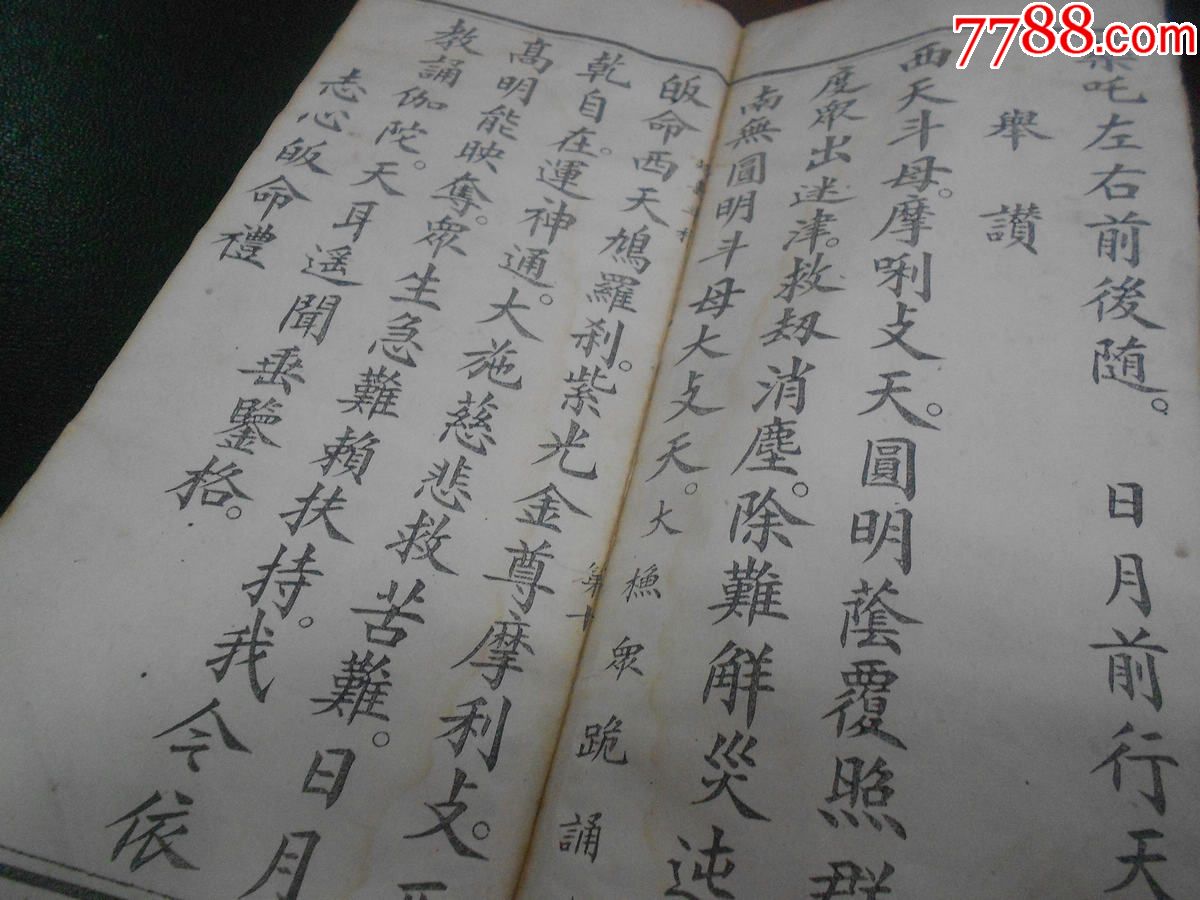 7788.com
吒左右前後隨。 日月前行天
舉 讃
西天斗母。摩唎攴天。圓明蔭覆照群
度眾出迷津。救劫消塵。除難解災迍
南無圓明斗母大攴天。大 𣔳 眾 跪 誦
皈命西天鳩羅刹。紫光金尊摩利攴。
乾自在。運神通。大施慈悲救苦難。日月
高明能映奪。眾生急難賴扶持。我今依
教誦伽陀。天耳遥聞垂鑒格。
志心皈命禮